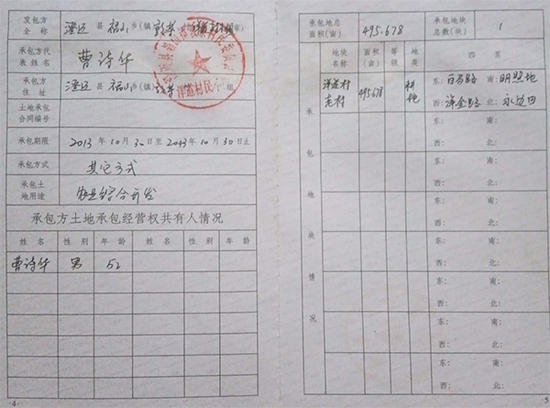 发包方全称 澄迈 县 福山 乡(镇) 敦茶
承包方代表姓名 曹诗华
承包方住址 澄迈 县 福山 乡(镇) 敦茶
洋道村民小组
土地承包合同编号
承包期限 2013年10月30日至2043年10月30日止
承包方式 其它方式
承包土地用途 农业综合开发
承包方土地承包经营权共有人情况
姓名 性别 年龄 姓名 性别 年龄
曹诗华 男 52
·4·
承包地总面积(亩) 495.678 承包地块总数(块) 1
承包地块情况
地块名称 面积(亩) 等级 地类 四至
洋道村 495.678 耕地 东: 南:
西: 北: 永边田
东: 南:
西: 北:
东: 南:
西: 北:
东: 南:
西: 北:
东: 南:
西: 北:
东: 南:
西: 北:
东: 南:
西: 北:
5